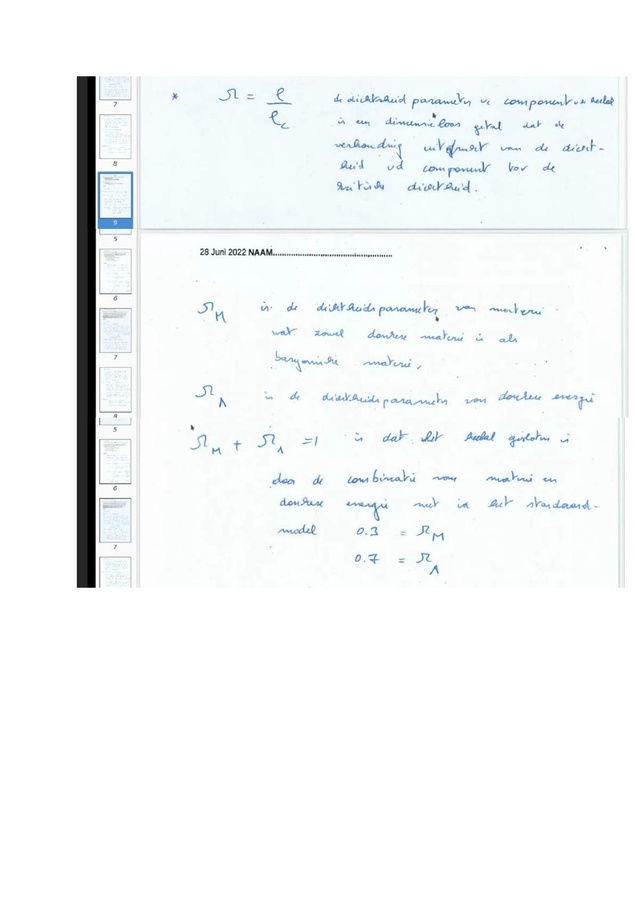 7
8
9
* Ω = ρ / ρc de dichtheid parameter vc component vh heelal
is een dimensieloos getal dat de
verhouding uitdrukt van de dicht-
heid vd component tov de
kritische dichtheid.
5
6
7
8
28 Juni 2022 NAAM
Ω_M is de dichtheidsparameter van materie
wat zowel donkere materie is als
baryonische materie,
Ω_Λ is de dichtheidsparameter van donkere energie
5
6
7
Ω_M + Ω_Λ = 1 is dat het heelal gesloten is
door de combinatie van materie en
donkere energie met in het standaard-
model 0.3 = Ω_M
0.7 = Ω_Λ